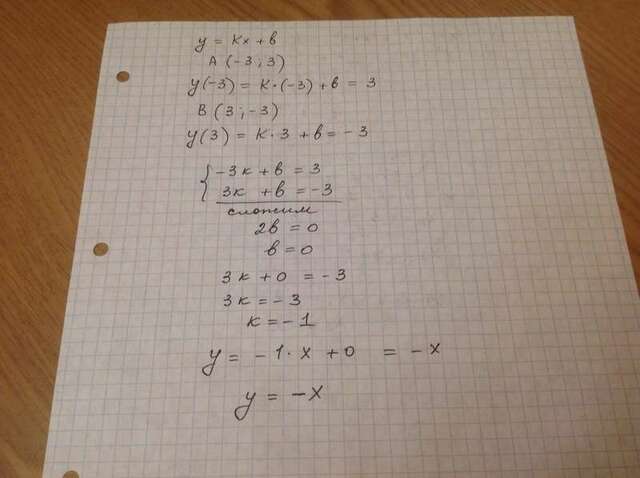 y = kx + в
A (-3; 3)
y(-3) = k·(-3) + в = 3
B (3; -3)
y(3) = k·3 + в = -3
{ -3k + в = 3
3k + в = -3
сложим
2в = 0
в = 0
3k + 0 = -3
3k = -3
k = -1
y = -1·x + 0 = -x
y = -x